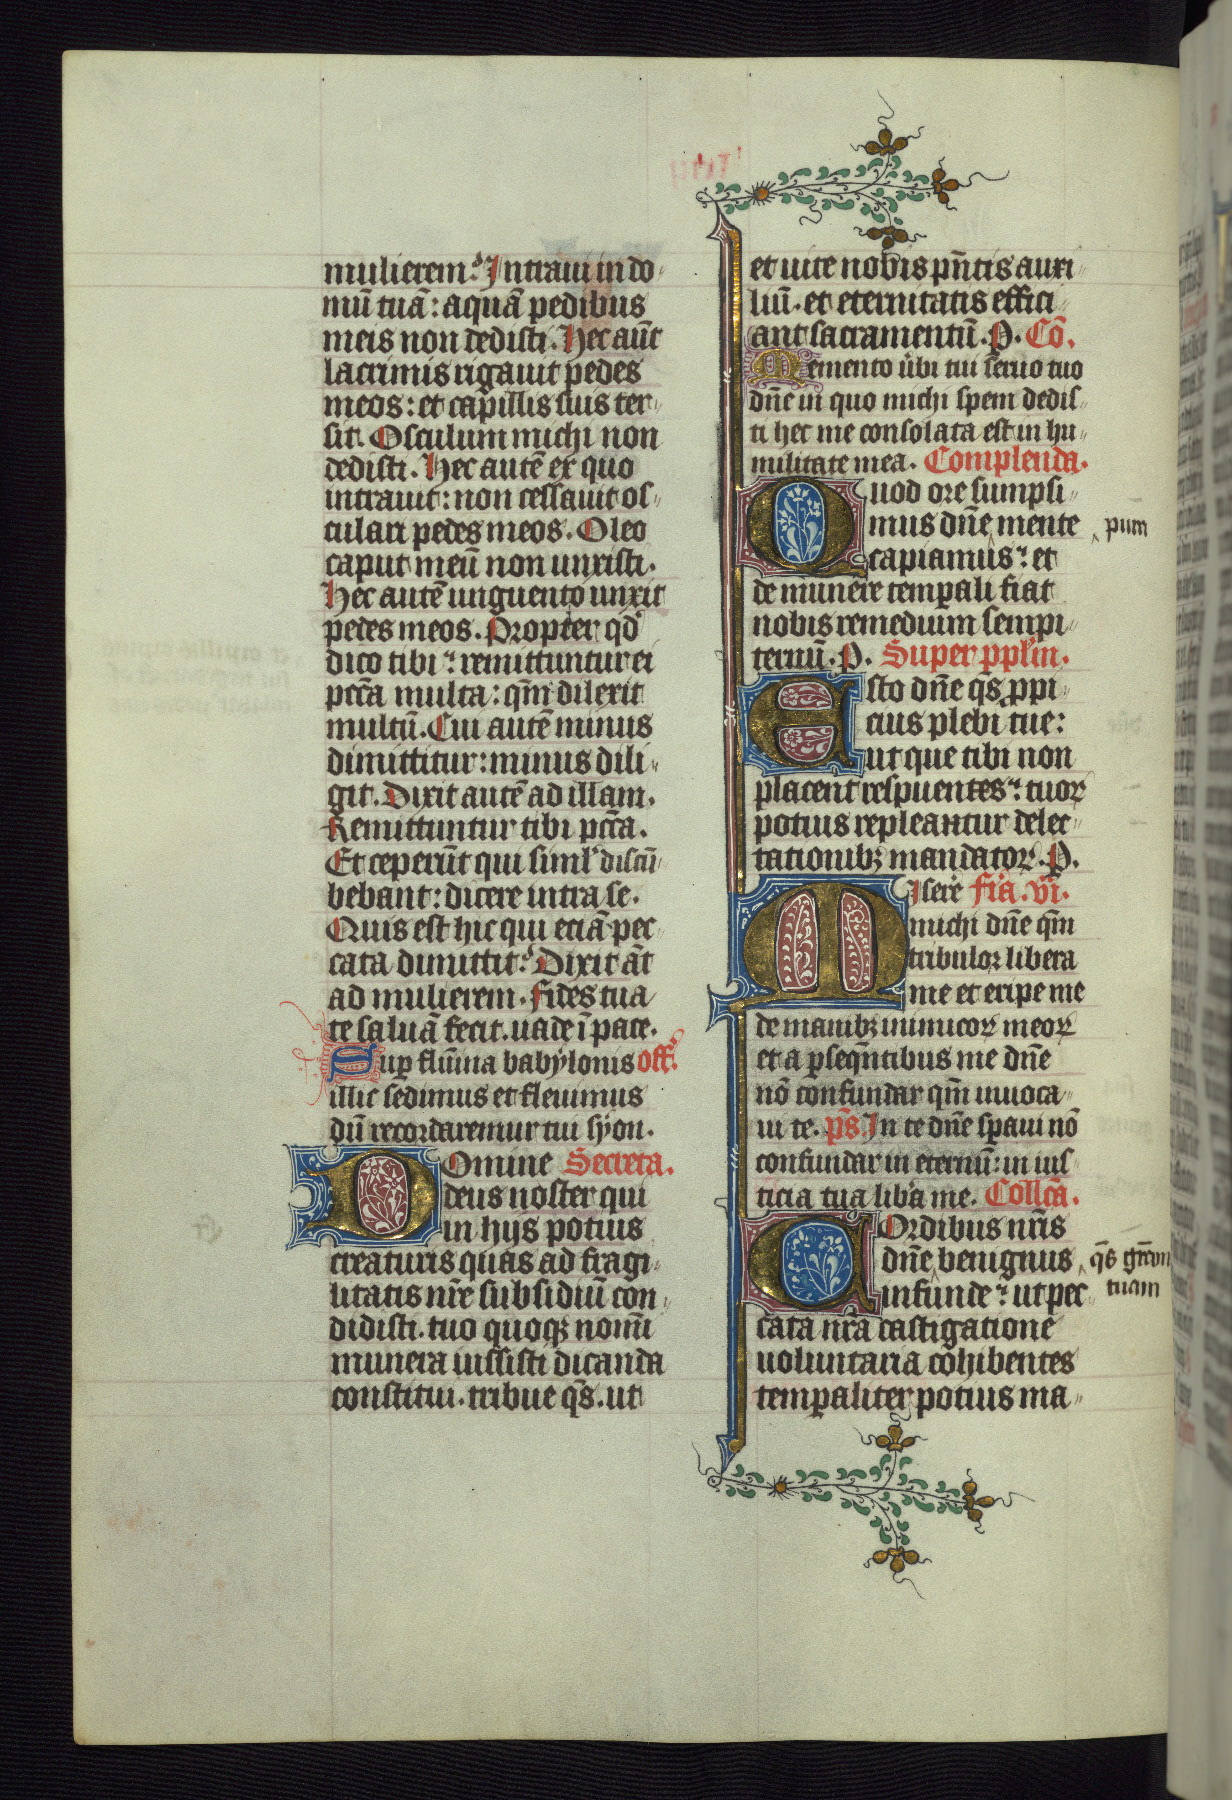 mulierem? Intraui in do-
mū tuā: aquā pedibus
meis non dedisti. Hec aūt
lacrimis rigauit pedes
meos: et capillis suis ter-
sit. Osculum michi non
dedisti. Hec autē ex quo
intrauit: non cessauit os-
culari pedes meos. Oleo
caput meū non unxisti.
Hec autē unguento unxit
pedes meos. Propter qd'
dico tibi: remittuntur ei
pccā multa: qm̄ dilexit
multū. Cui autē minus
dimittitur: minus dili-
git. Dixit autē ad illam.
Remittuntur tibi pccā.
Et ceperūt qui siml' discū-
bebant: dicere intra se.
Quis est hic qui eciā pec-
cata dimittit? Dixit āt
ad mulierem. fides tua
te saluā fecit. uade ī pace.
Suꝑ flūina babylonis off.
illic sedimus et fleuimus
dū recordaremur tui syon.
Domine Secreta.
deus noster qui
in hijs potius
creaturis quas ad fragi-
litatis nr̄e subsidiū con-
didisti. tuo quoqꝫ nomī
munera iussisti dicanda
constitui. tribue qs̄. ut
et uite nobis pn̄tis auxi-
liū. et eternitatis effici-
ant sacramentū. P. Cō.
Memento ūbi tui seruo tuo
dn̄e in quo michi spem dedis-
ti hec me consolata est in hu-
militate mea. Complenda.
Quod ore sumpsi-
mus dn̄e mente ‸ pura
capiamus: et
de munere temꝑali fiat
nobis remedium sempi-
ternū. P. Super pplm̄.
Esto dn̄e qs̄ ꝓpi-
cius plebi tue:
ut que tibi non
placent respuentes: tuoꝝ
potius repleantur delec-
tationibꝫ mandatoꝝ. P.
Miserē fr̄ia. vi.
michi dn̄e qm̄
tribulor libera
me et eripe me
de manibꝫ inimicoꝝ meoꝝ
et a ꝑseqn̄tibus me dn̄e
nō confundar qm̄ inuoca-
ui te. ps̄. In te dn̄e sꝑaui nō
confundar in eternū: in ius-
ticia tua lib'a me. Collcā.
Cordibus nr̄is
dn̄e benignus ‸ qs̄ grām
infunde: ut pec- tuam
cata nr̄a castigatione
uoluntaria cohibentes
temꝑaliter potius ma-